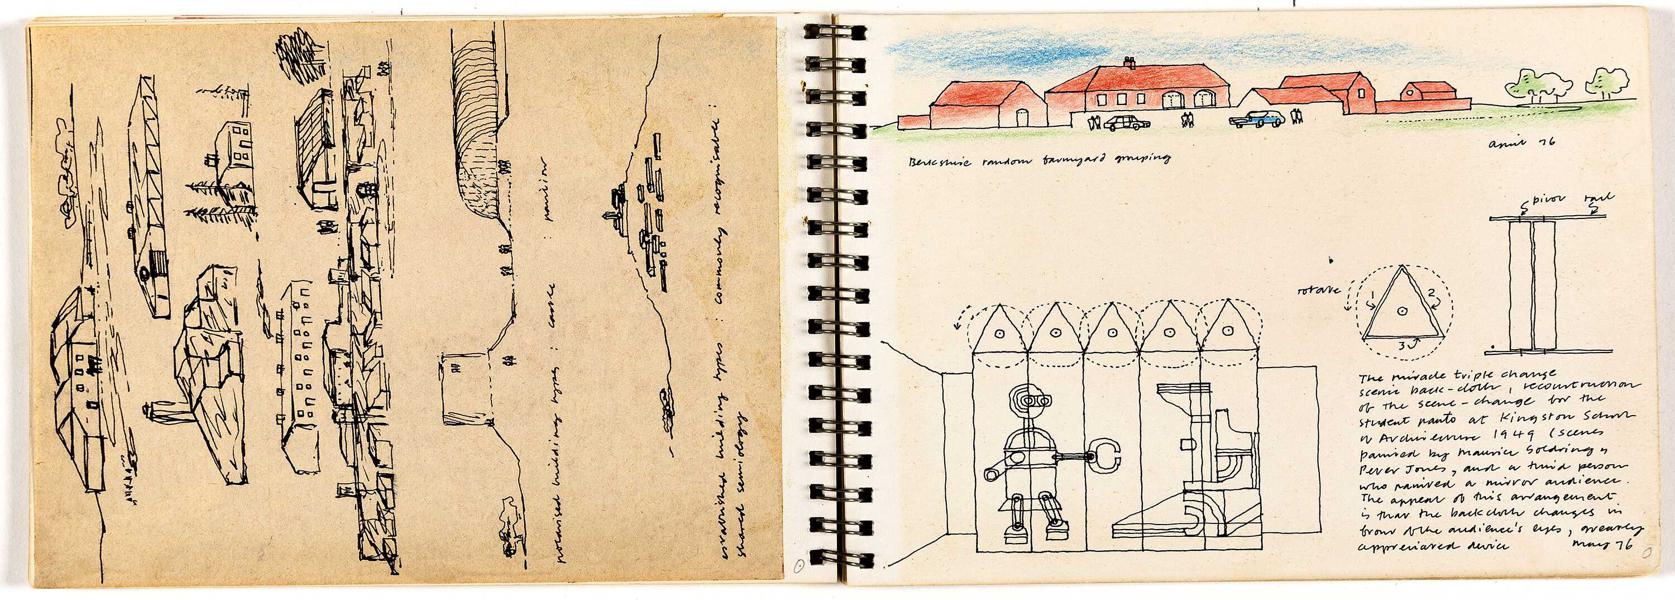 polarised building types : castle : pavilion
established building types : commonly recognisable :
shared semiology
Berkshire random farmyard grouping
april 76
pivot rail
rotate
1
2
3
The miracle triple change
scenic back-cloth, reconstruction
of the scene-change for the
student panto at Kingston School
of Architecture 1949 (scenes
painted by Maurice Goldring &
Peter Jones, and a third person
who painted a mirror audience.
The appeal of this arrangement
is that the backcloth changes in
front of the audience's eyes, greatly
appreciated device may 76